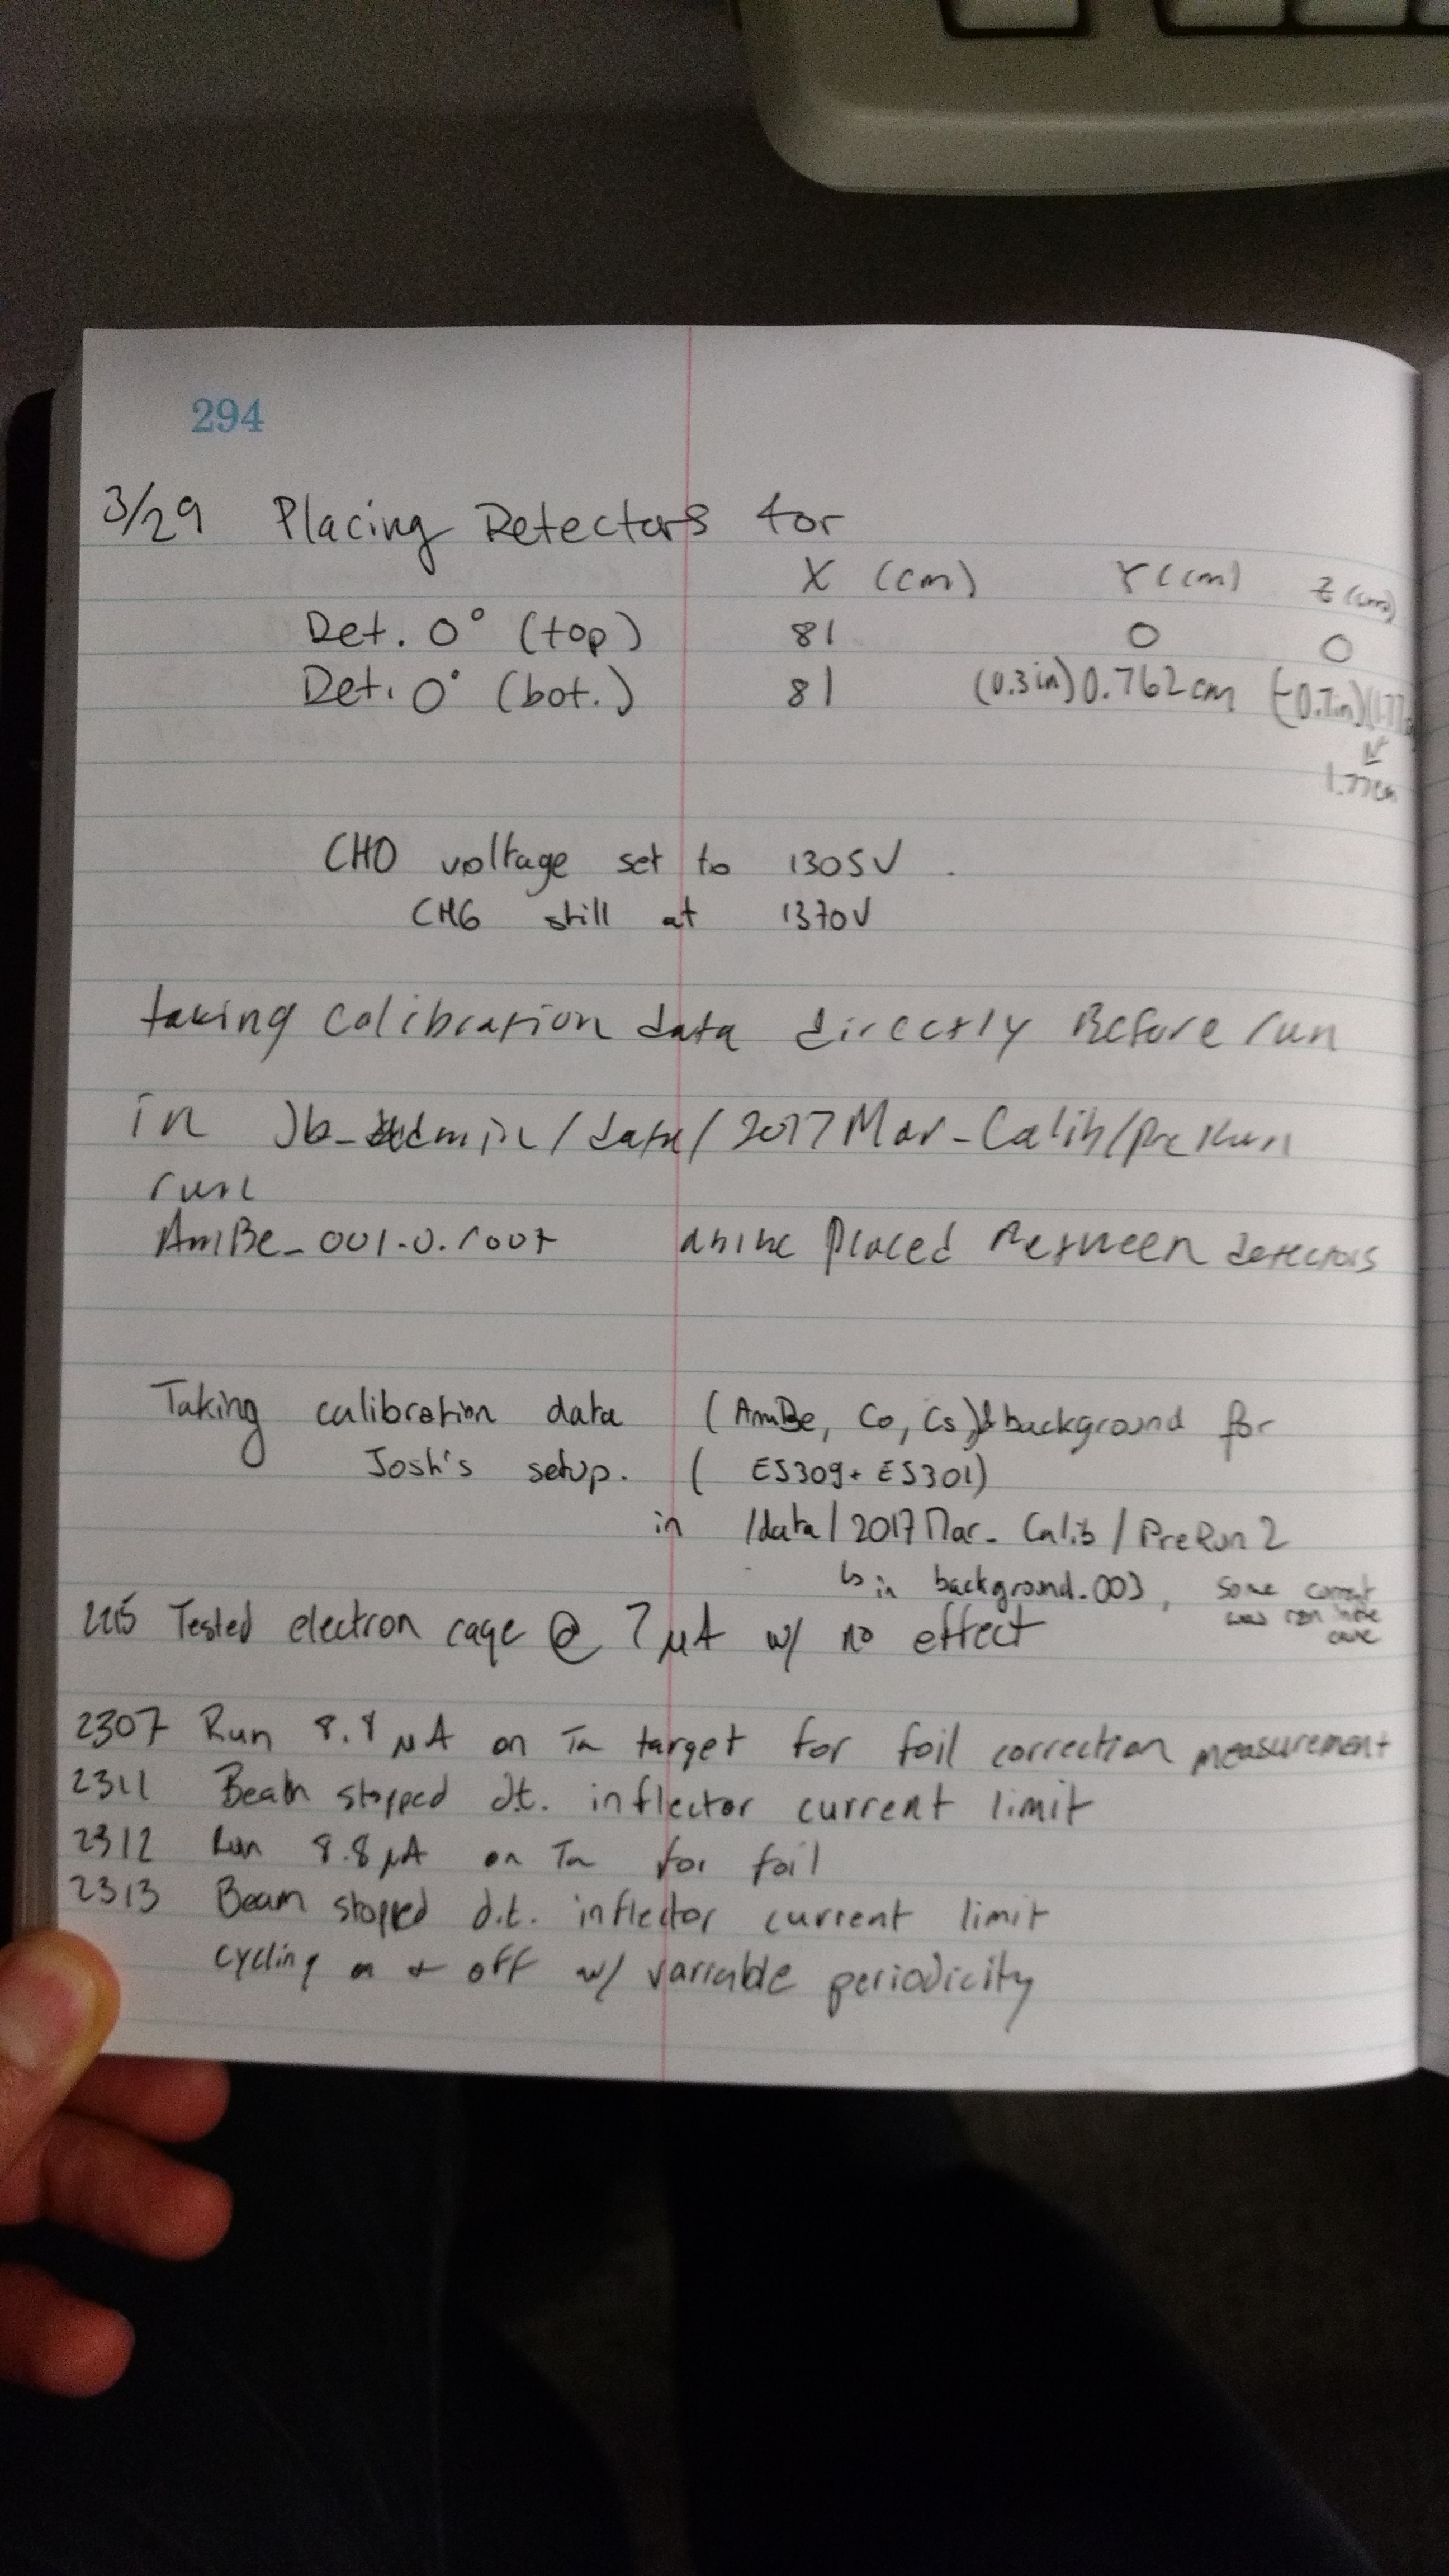 294
3/29 Placing Detectors for
X (cm) Y (cm) Z (cm)
Det. 0° (top) 81 0 0
Det. 0° (bot.) 81 (0.3in) 0.762cm (-0.7in)
1.77cm
CH0 voltage set to 1305V.
CH6 still at 1370V
taking calibration data directly Before run
in /data/2017Mar-Calib/PreRun
run
AmBe_001.0.root placed Between detectors
Taking calibration data (AmBe, Co, Cs) & background for
Josh's setup. ( EJ309+ EJ301)
in /data/2017Mar-Calib/PreRun2
↳ in background.003, some current
was run
Tested electron cage @ 7μA w/ no effect
2307 Run 8.8 μA on Ta target for foil correction measurement
2311 Beam stopped d.t. inflector current limit
2312 Run 8.8μA on Ta for foil
2313 Beam stopped d.t. inflector current limit
cycling on + off w/ variable periodicity